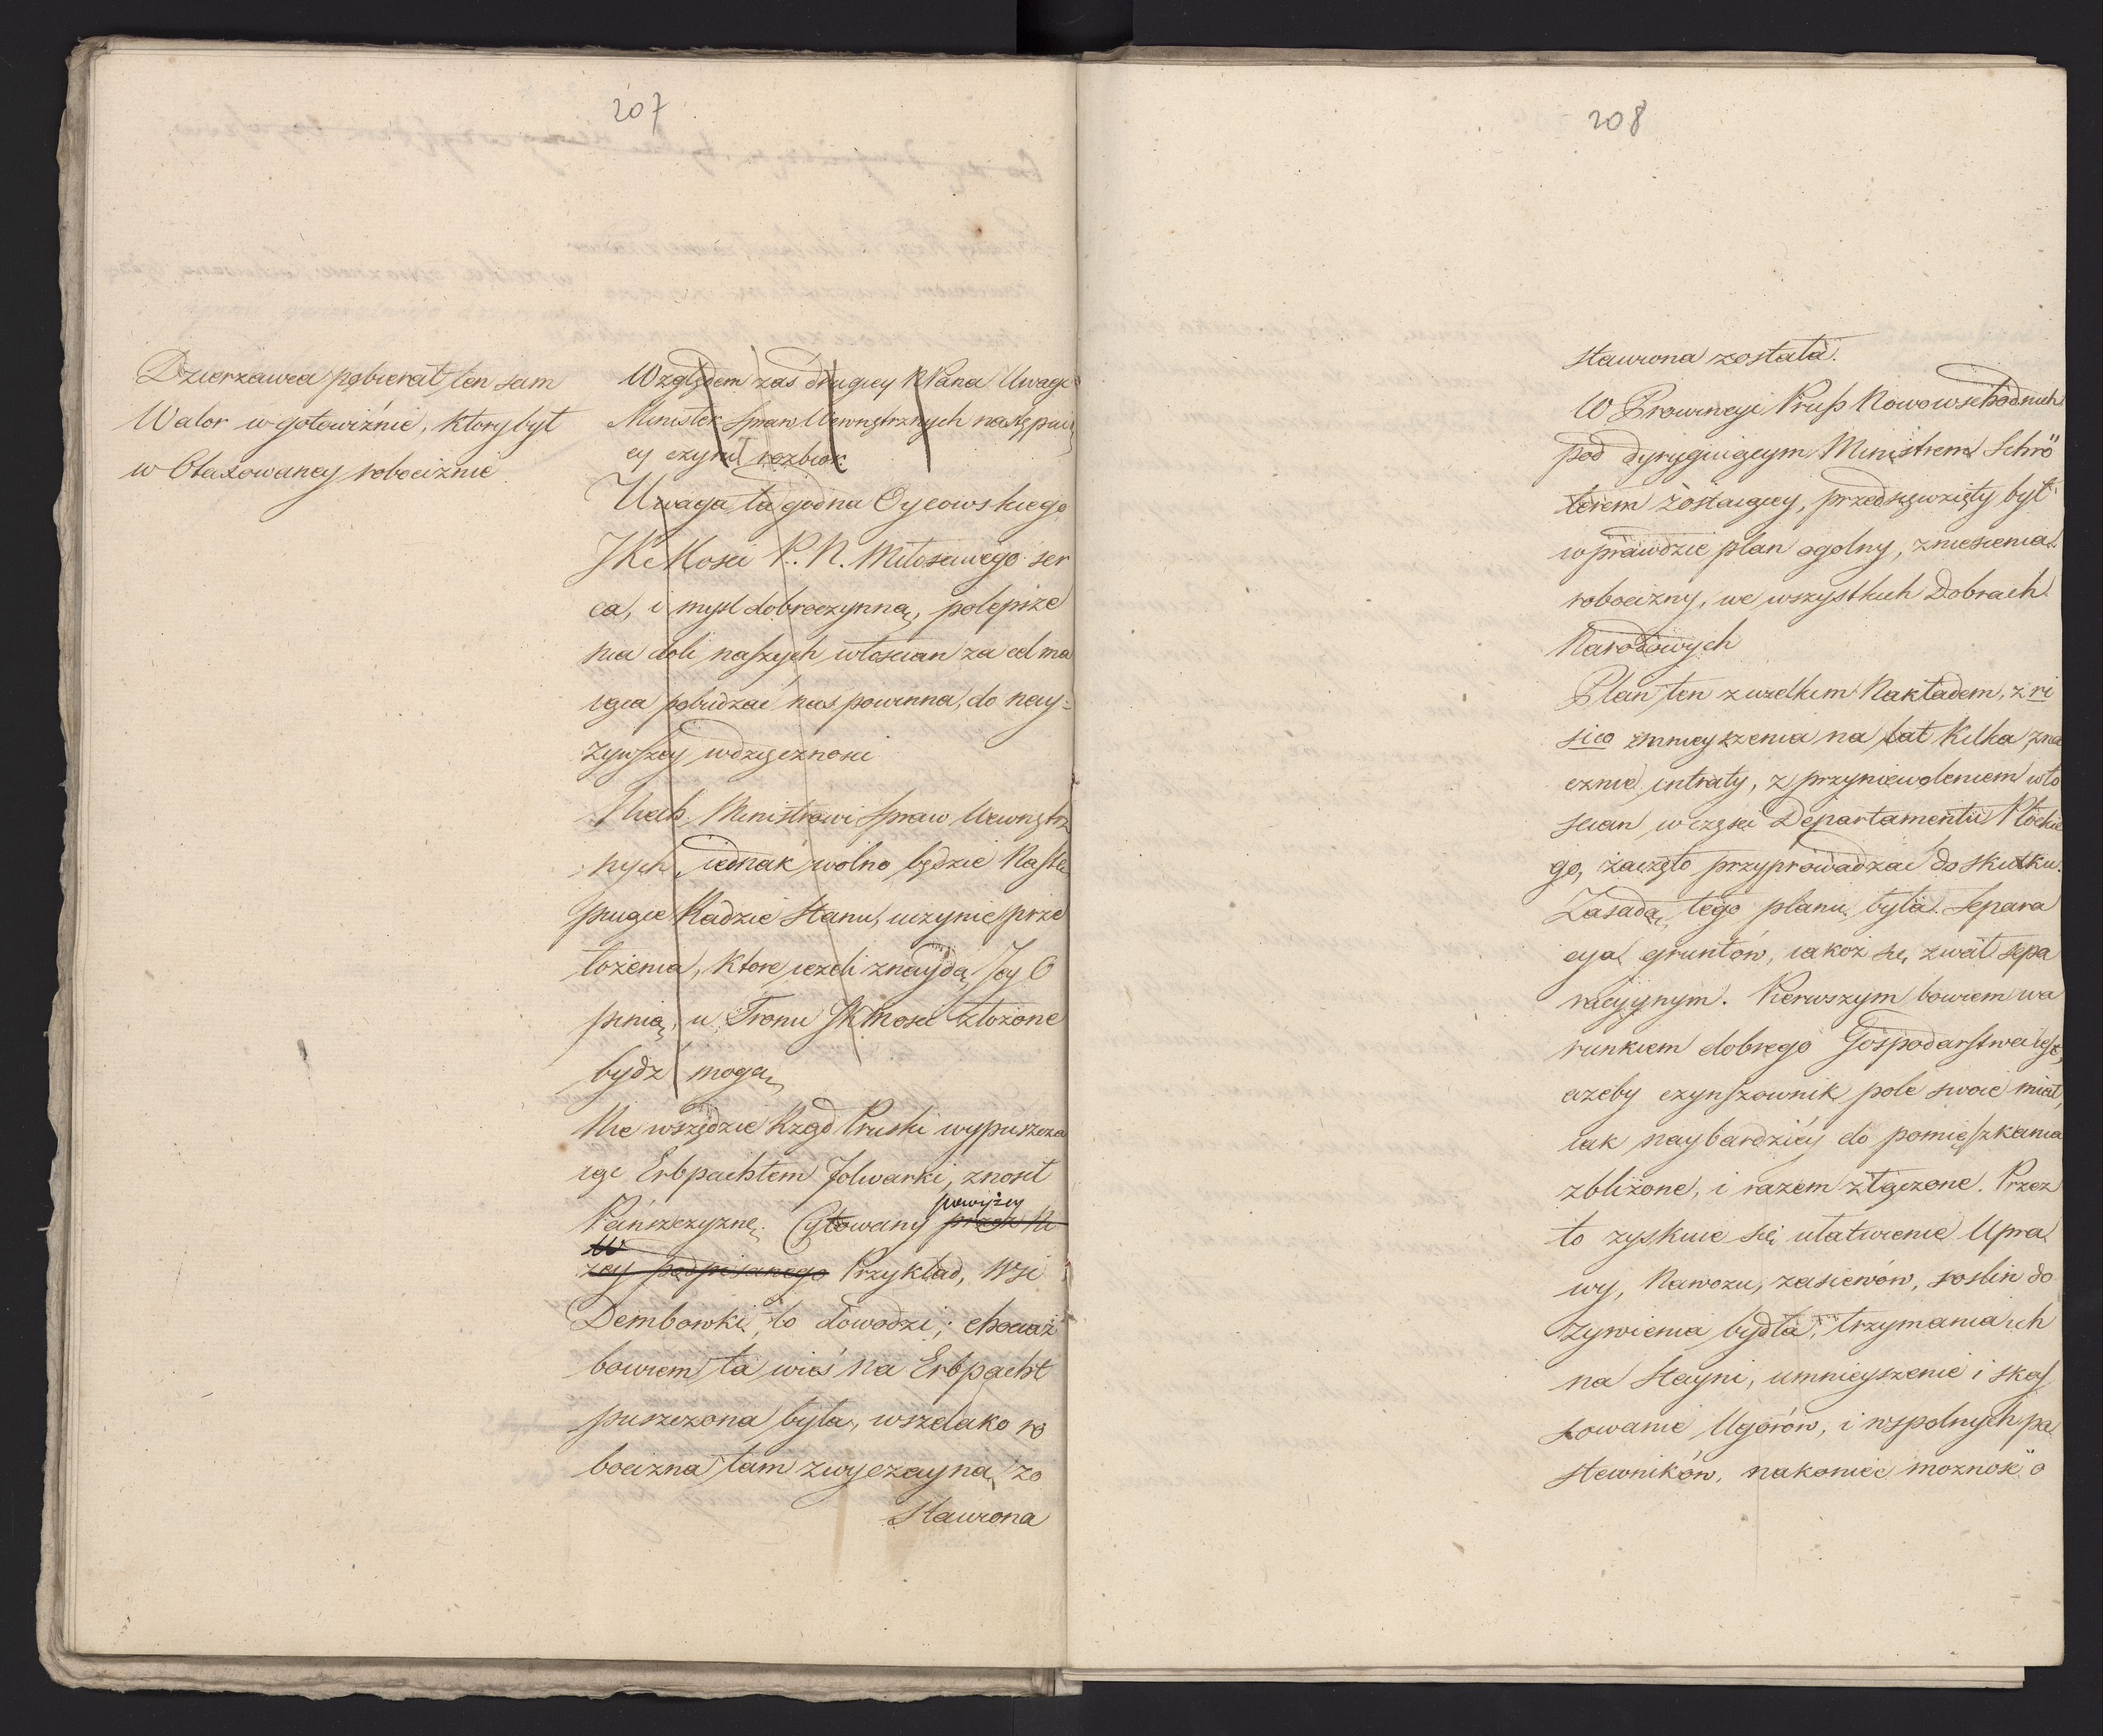 207
Dzierzawca pobierał ten sam
Walor w gotowiźnie, ktory był
w Otaxowaney robociznie
Względem zaś drugiey KPana Uwagi
Minister Spraw Wewnętrznych następui
cy czyni rozbior
Uwaga ta godna Oycowskiego
JKMosci P. N. Miłosciwego ser
ca, i mysl dobroczynną, polepsze
nia doli naszych włoscian za cel ma
iąca pobudzać nas powinna, do nay=
zywszey wdzięcznosci
Niech Ministrowi Spraw Wewnętrz
nych iednak wolno będzie Nastę
puiące Radzie Stanu, uczynić prze
łożenia, ktore ieżeli znaydą Jey O
pinią, u Tronu JKMosci złożone
bydz mogą
Nie wszędzie Rząd Pruski wypuszcza
iąc Erbpachtem folwarki, znosił
Pańszczyznę. Cytowany przez N
powyżey
W
zey podpisanego Przykład, Wsi
Dembowki, to dowodzi; chociaż
bowiem ta wieś na Erbpacht
puszczona była, wszelako ro
bocizna tam zwyczayna, zo
stawiona
208
stawiona została.
W Prowincyi Prus Nowowschodnich
pod dyryguiącym Ministrem Schrö
terem zostaiącey, przedsięwzięty był
wprawdzie plan ogolny, zniesienia
robocizny, we wszystkich Dobrach
Narodowych
Plan ten z wielkim Nakładem, z ri
sico zmnieyszenia na lat kilka zna
cznie intraty, z przyniewoleniem wło
scian w częsci Departamentu Płockie
go, zaczęto przyprowadzać do skutku.
Zasadą, tego planu była Separa
cya gruntów, iakoż się zwał sepa
racyynym. Pierwszym bowiem wa
runkiem dobrego Gospodarstwa iest,
ażeby czynszownik pole swoie miał,
iak naybardziéy do pomięszkania
zbliżone, i razem złączone. Przez
to zyskuie się ułatwienie Upra
wy, Nawozu, zasiewów, roslin do
żywienia bydła, trzymania ich
na Stayni, umnieyszenie i skas
sowanie Ugorów, i wspolnych pa
stewników, nakoniec możność o